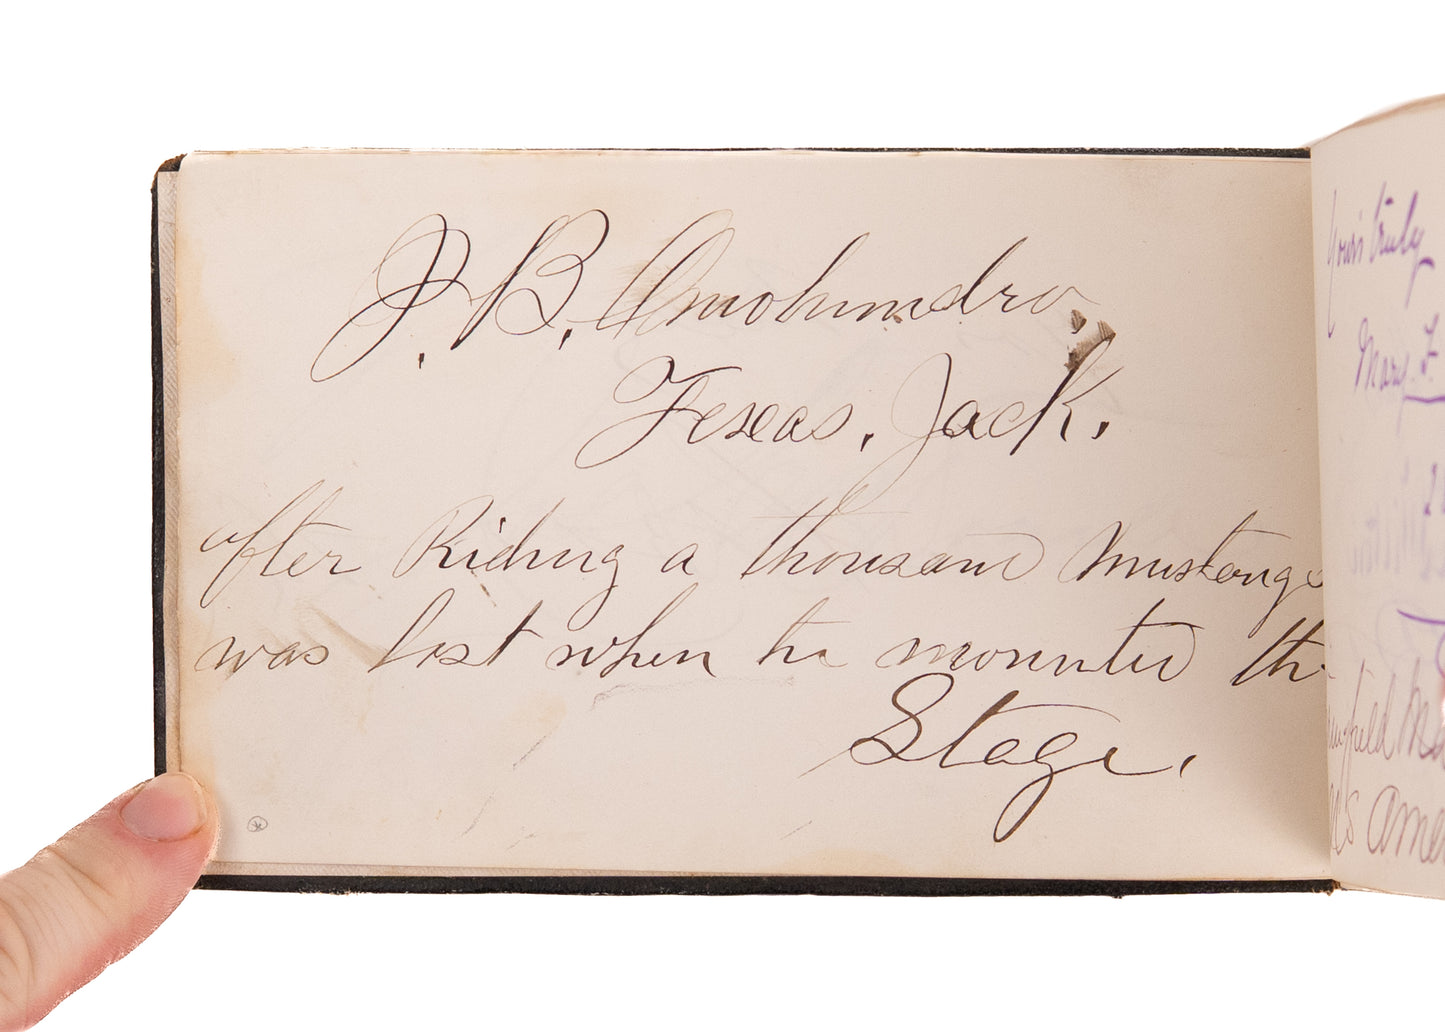 J. B. Omohundro.
Texas. Jack.
after Riding a thousand Mustangs
was lost when he mounted the
Stage.
Yours truly
Mary F